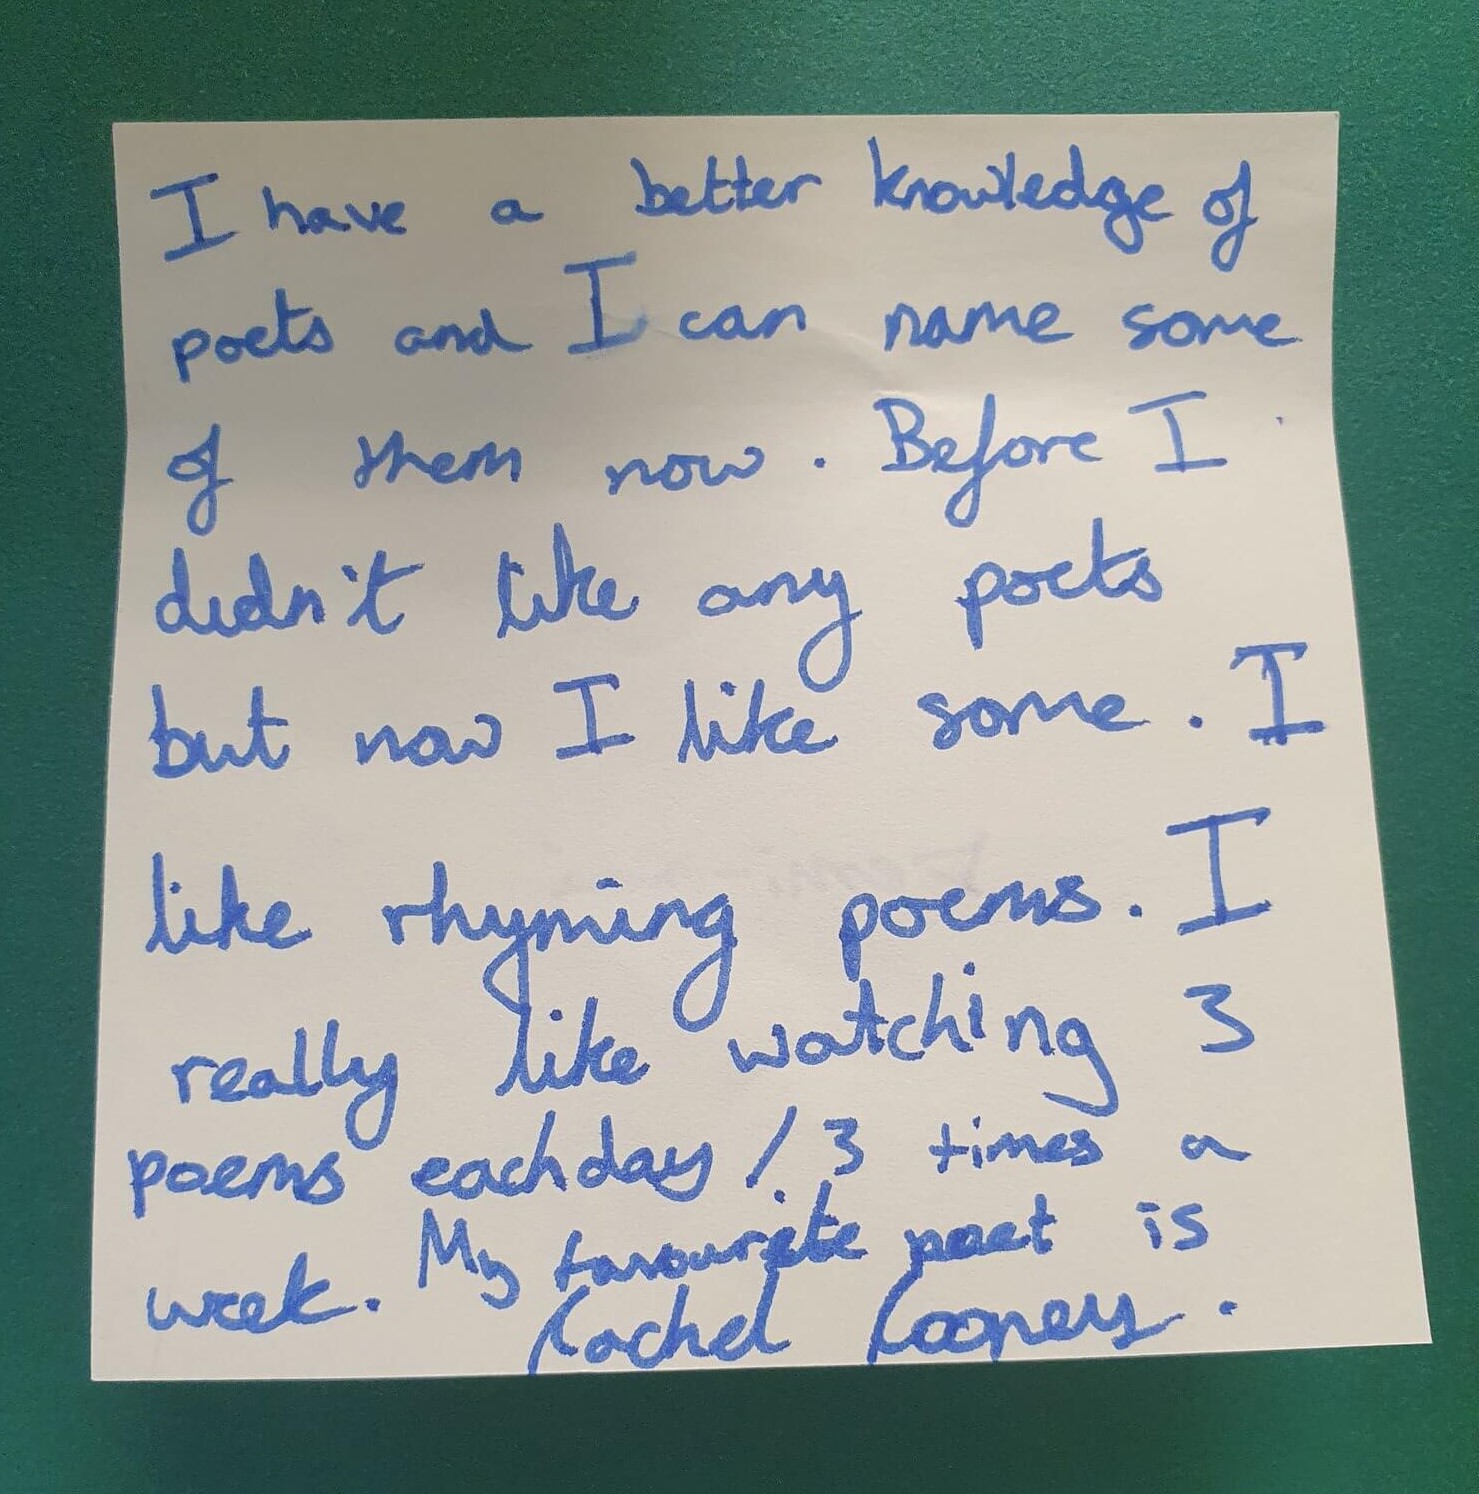 I have a better knowledge of
poets and I can name some
of them now. Before I
didn't like any poets
but now I like some. I
like rhyming poems. I
really like watching 3
poems eachday / 3 times a
week. My favourite poet is
Rachel Rooney.